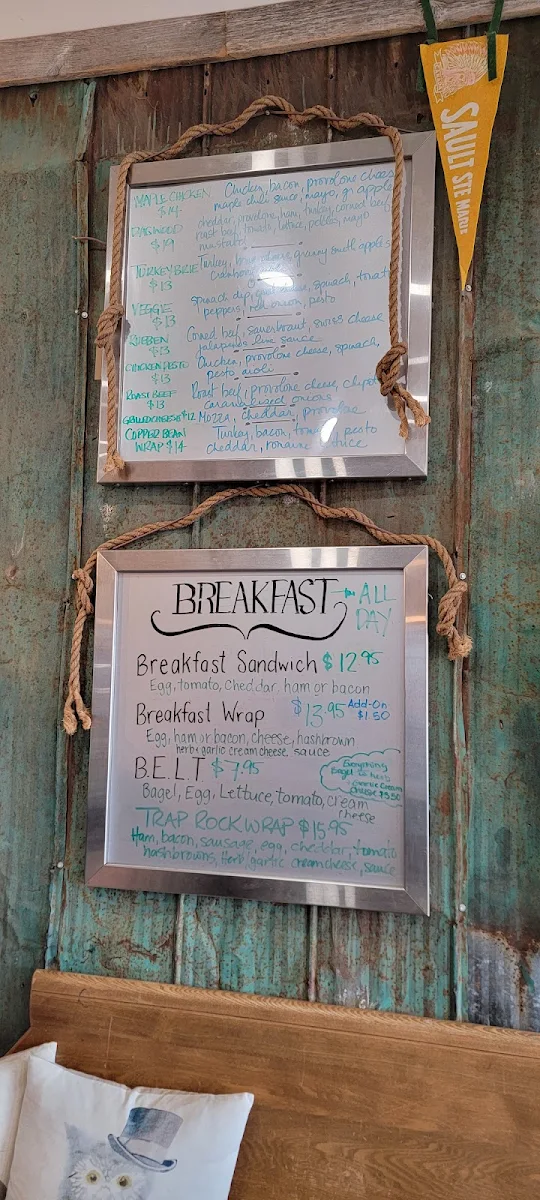 SAULT STE MARIE
MAPLE CHICKEN Chicken, bacon, provolone cheese
$14 maple dijon sauce, mayo, gr apple
DAGWOOD cheddar, provolone, ham, turkey, corned beef
$19 roast beef, tomato, lettuce, pickles, mayo
mustard
TURKEY BRIE Turkey, brie cheese, granny smith apples
$13 Cranberry
VEGGIE Spinach dip, cheese, spinach, tomato
$13 peppers, red onion, pesto
RUEBEN Corned beef, sauerkraut, swiss cheese
$13 jalapeno lime sauce
CHICKEN PESTO Chicken, provolone cheese, spinach,
$13 pesto aioli
ROAST BEEF Roast beef, provolone cheese, chipotle
$13 caramelized onions
GRILLED CHEESE $12 Mozza, cheddar, provolone
COPPER BEAN Turkey, bacon, tomato, pesto
WRAP $14 cheddar, romaine lettuce
BREAKFAST ALL
DAY
Breakfast Sandwich $12.95
Egg, tomato, cheddar, ham or bacon
Breakfast Wrap $13.95 Add-On
$1.50
Egg, ham or bacon, cheese, hashbrown
herb + garlic cream cheese, sauce
B.E.L.T $7.95
Everything
Bagel w/ herb
cheese cream
cheese $5.50
Bagel, Egg, Lettuce, tomato, cream
cheese
TRAP ROCK WRAP $15.95
Ham, bacon, sausage, egg, cheddar, tomato
hashbrowns, Herb/garlic creamcheese, sauce